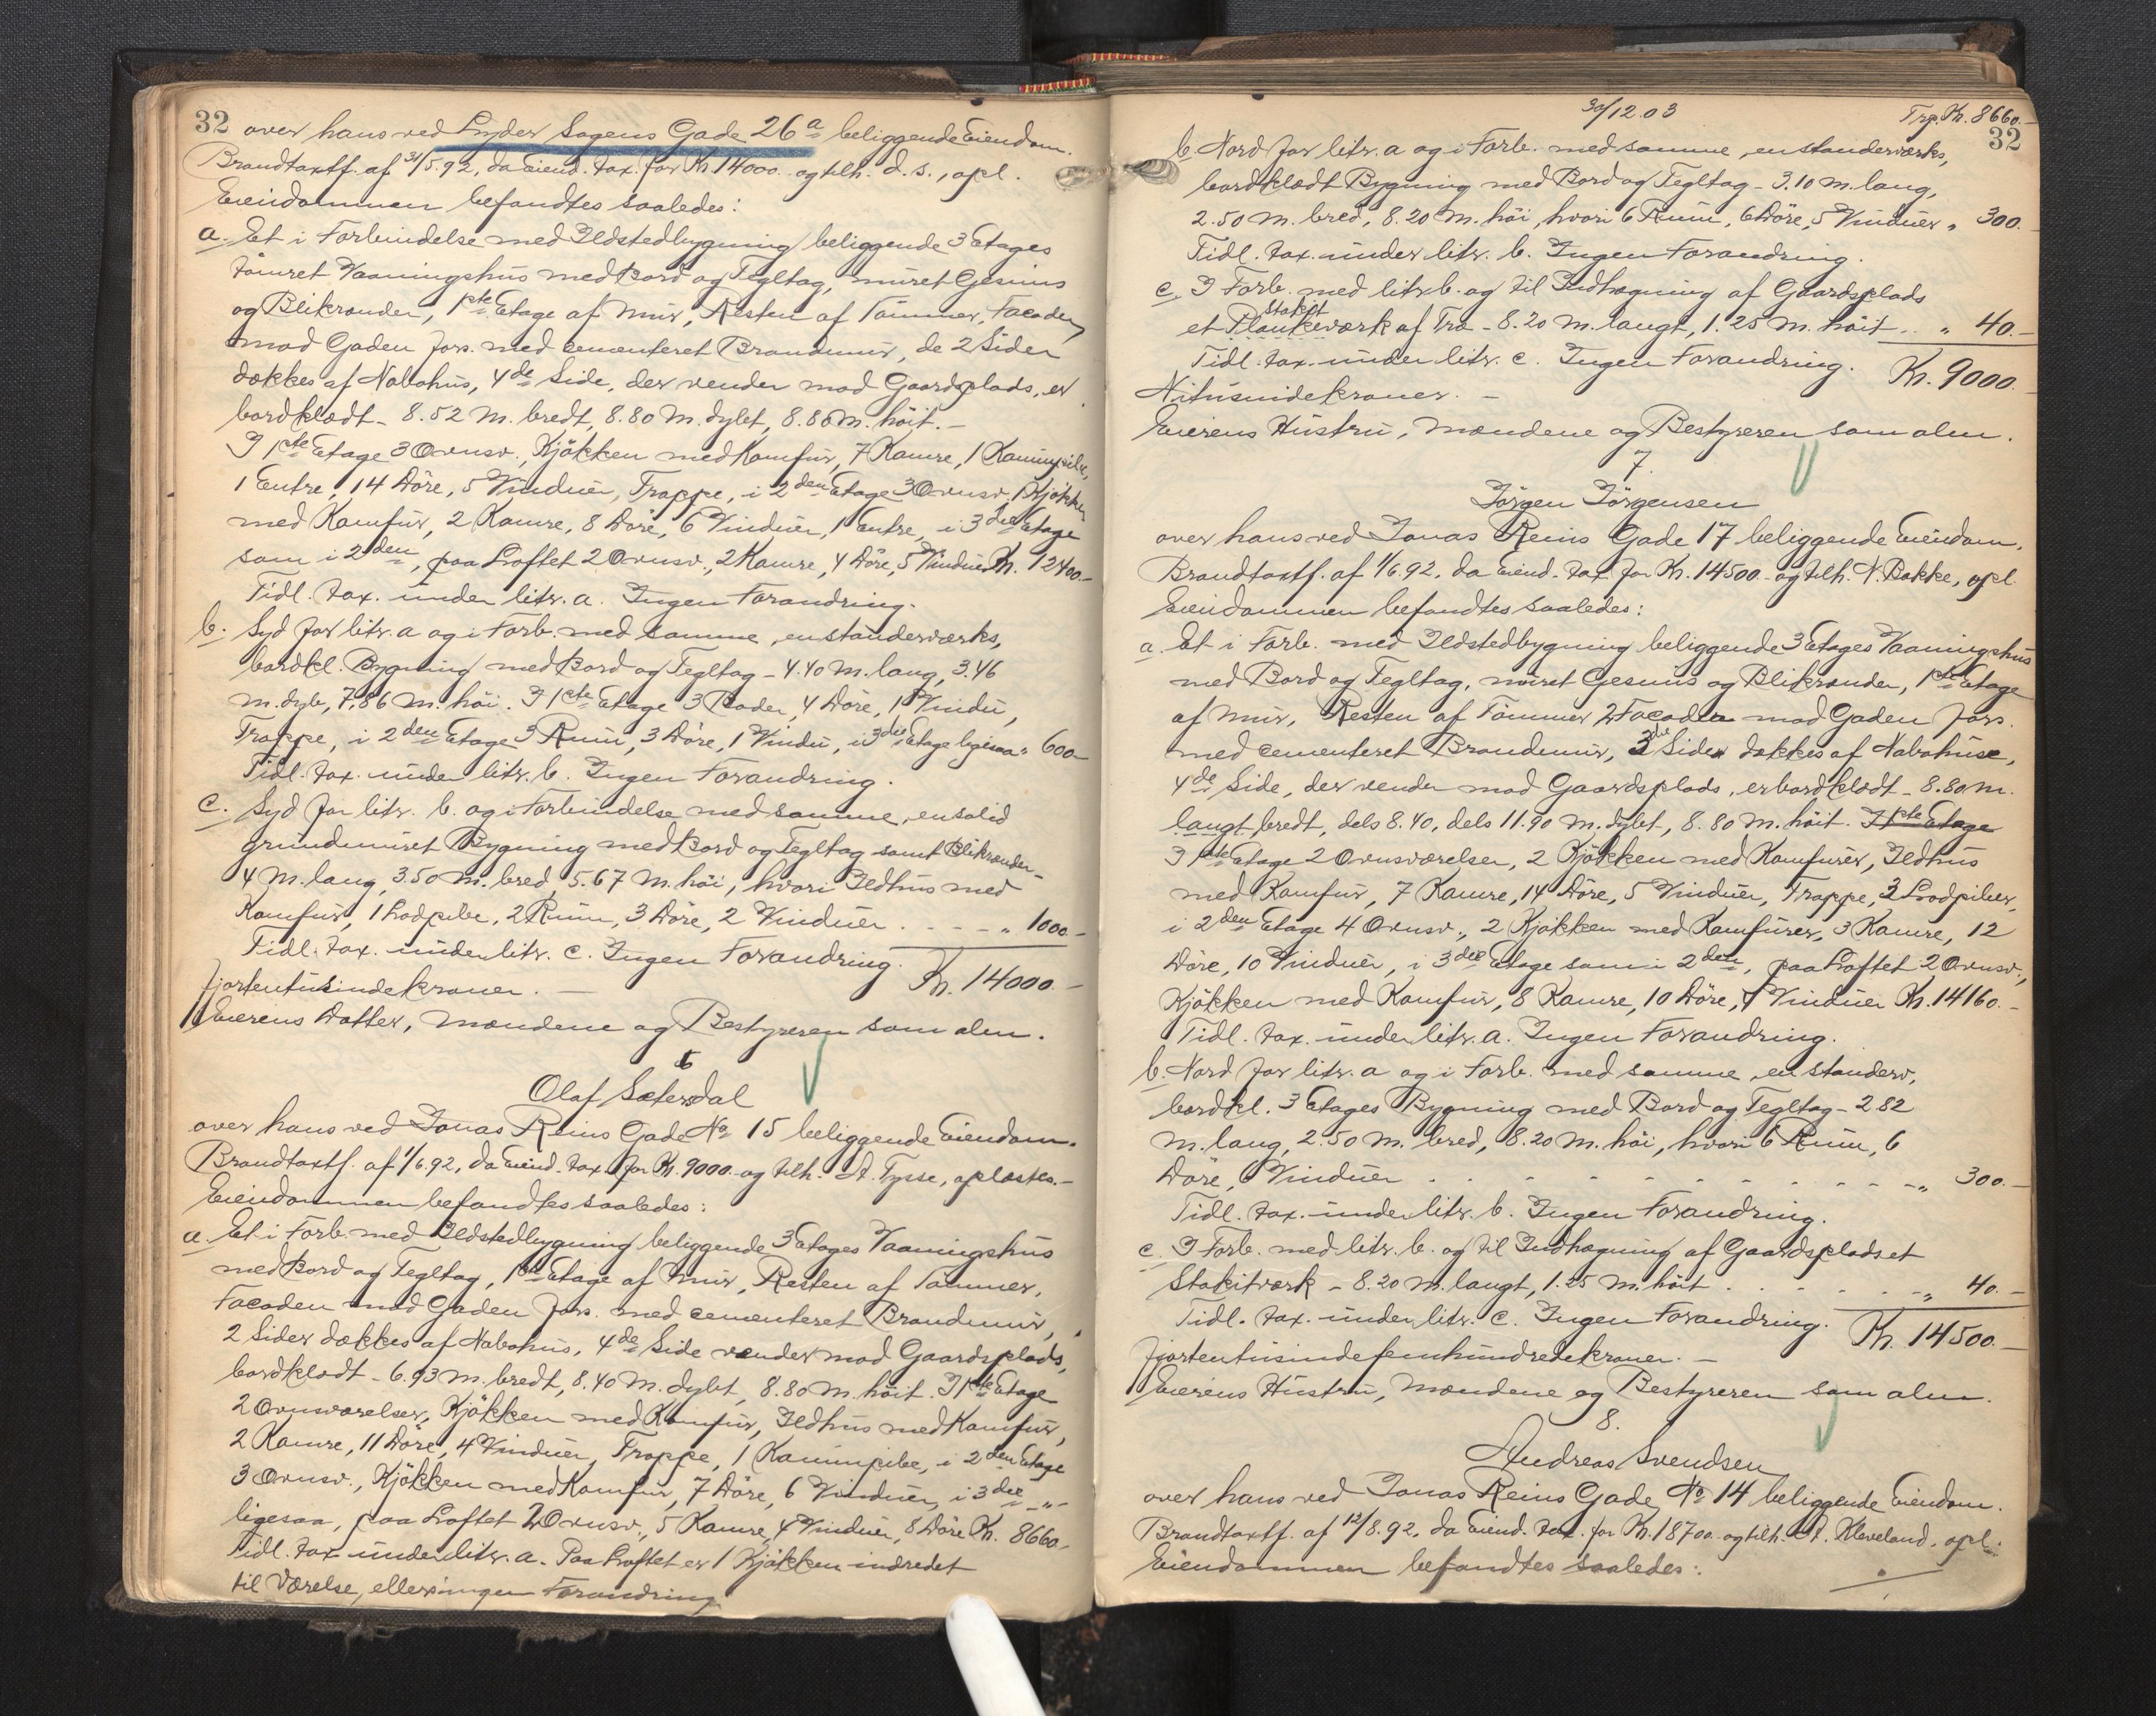 32 over hans ved Lyder Sagens Gade 26a beliggende Eiendom.
Brandtaxtf. af 31/5.92, da Eiend. tax. for Kr. 14000.- og tilh. d. s., opl.
Eiendommen befandtes saaledes:
a. Et i Forbindelse med Ildstedbygning beliggende 3 Etages
tömret Vaaningshus med Bord og Tegltag, muret Gesims
og Blikrender, 1ste Etage af Mur, Resten af Tömmer, Facaden
mod Gaden fors. med cementeret Brandmur, de 2 Sider
dækkes af Nabohus, 4de Side, der vender mod Gaardsplads, er
bordklædt - 8.52 M. bredt, 8.80 M. dybt, 8.86 M. höit. -
I 1ste Etage 3 Ovnsv., Kjökken med Komfur, 7 Kamre, 1 Kaminpibe,
1 Entre, 14 Döre, 5 Vinduer, Trappe, i 2den Etage 3 Ovnsv. 1 Kjökken
med Komfur, 2 Kamre, 8 Döre, 6 Vinduer, 1 Entre, i 3die Etage
som i 2den, paa Loftet 2 Ovnsv., 2 Kamre, 4 Döre, 5 Vinduer Kr. 12400.-
Tidl. tax. under litr. a. Ingen Forandring.
b. Syd for litr. a og i Forb. med samme, en standerværks,
bordkl. Bygning med Bord og Tegltag - 4.40 M. lang, 3.46
M. dyb, 7.86 M. höi. I 1ste Etage 3 Boder, 4 Döre, 1 Vindu,
Trappe, i 2den Etage 3 Rum, 3 Döre, 1 Vindu, i 3die Etage ligesaa " 600.-
Tidl. tax. under litr. b. Ingen Forandring.
c. Syd for litr. b. og i Forbindelse med samme, en solid
grundmuret Bygning med Bord og Tegltag samt Blikrender -
4 M. lang, 3.50 M. bred, 5.67 M. höi, hvori Ildhus med
Komfur, 1 Lodpibe, 2 Rum, 3 Döre, 2 Vinduer . . . " 1000.-
Tidl. tax. under litr. c. Ingen Forandring. Kr. 14000.-
fjortentusindekroner. -
Eierens Datter, Mændene og Bestyreren som alm.
6
Olaf Sætersdal
over hans ved Jonas Reins Gade No 15 beliggende Eiendom.
Brandtaxtf. af 1/6.92, da Eiend. tax. for Kr. 9000.- og tilh. A. Tysse, oplæstes. -
Eiendommen befandtes saaledes:
a. Et i Forb. med Ildstedbygning beliggende 3 Etages Vaaningshus
med Bord og Tegltag, 1ste Etage af Mur, Resten af Tömmer,
Facaden mod Gaden fors. med cementeret Brandmur,
2 Sider dækkes af Nabohus, 4de Side vender mod Gaardsplads,
bordklædt - 6.93 M. bredt, 8.40 M. dybt, 8.80 M. höit. I 1ste Etage
2 Ovnsværelser, Kjökken med Komfur, Ildhus med Komfur,
2 Kamre, 11 Döre, 4 Vinduer, Trappe, 1 Kaminpibe, i 2den Etage
3 Ovnsv., Kjökken med Komfur, 7 Döre, 6 Vinduer, i 3die - " -
ligesaa, paa Loftet 2 Ovnsv., 5 Kamre, 4 Vinduer, 8 Döre Kr. 8660.-
Tidl. tax. under litr. a. Paa Loftet er 1 Kjökken indredet
til Værelse, ellers ingen Forandring.
30/12.03 Trp. Kr. 8660.-
32
b. Nord for litr. a og i Forb. med samme, en standerværks,
bordklædt Bygning med Bord og Tegltag - 3.10 M. lang,
2.50 M. bred, 8.20 M. höi, hvori 6 Rum, 6 Döre, 5 Vinduer " 300.-
Tidl. tax. under litr. b. Ingen Forandring.
c. I Forb. med litr. b. og til Indhægning af Gaardsplads
Stakit
et Plankeværk af Træ - 8.20 M. langt, 1.25 M. höit . . " 40.-
Tidl. tax. under litr. c. Ingen Forandring. Kr. 9000.-
Nitusindekroner. -
Eierens Hustru, Mændene og Bestyreren som alm.
7.
Jörgen Jörgensen
over hans ved Jonas Reins Gade 17 beliggende Eiendom.
Brandtaxtf. af 1/6.92, da Eiend. tax. for Kr. 14500.- og tilh. N. Bakke, opl.
Eiendommen befandtes saaledes:
a. Et i Forb. med Ildstedbygning beliggende 3 Etages Vaaningshus
med Bord og Tegltag, muret Gesims og Blikrender, 1ste Etage
af Mur, Resten af Tömmer, 2 Facader mod Gaden fors.
med cementeret Brandmur, 3die Side dækkes af Nabohuse,
4de Side, der vender mod Gaardsplads, er bordklædt - 8.80 M.
langt bredt, dels 8.40, dels 11.90 M. dybt, 8.80 M. höit. I 1ste Etage
I 1ste Etage 2 Ovnsværelser, 2 Kjökken med Komfurer, Ildhus
med Komfur, 7 Kamre, 14 Döre, 5 Vinduer, Trappe, 3 Lodpiber,
i 2den Etage 4 Ovnsv., 2 Kjökken med Komfurer, 3 Kamre, 12
Döre, 10 Vinduer, i 3die Etage som i 2den, paa Loftet 2 Ovnsv.,
Kjökken med Komfur, 8 Kamre, 10 Döre, 7 Vinduer Kr. 14160.-
Tidl. tax. under litr. a. Ingen Forandring.
b. Nord for litr. a og i Forb. med samme, en standerv,
bordkl. 3 Etages Bygning med Bord og Tegltag - 2.82
M. lang, 2.50 M. bred, 8.20 M. höi, hvori 6 Rum, 6
Döre, 6 Vinduer . . . . . . . . . . " 300.-
Tidl. tax. under litr. b. Ingen Forandring.
c. I Forb. med litr. b. og til Indhægning af Gaardsplads et
Stakitværk - 8.20 M. langt, 1.25 M. höit . . . . . " 40.-
Tidl. tax. under litr. c. Ingen Forandring. Kr. 14500.-
fjortentusindefemhundredekroner. -
Eierens Hustru, Mændene og Bestyreren som alm.
8.
Andreas Svendsen
over hans ved Jonas Reins Gade No 14 beliggende Eiendom.
Brandtaxtf. af 12/8.92, da Eiend. tax. for Kr. 18700.- og tilh. A. Kleveland, opl.
Eiendommen befandtes saaledes: